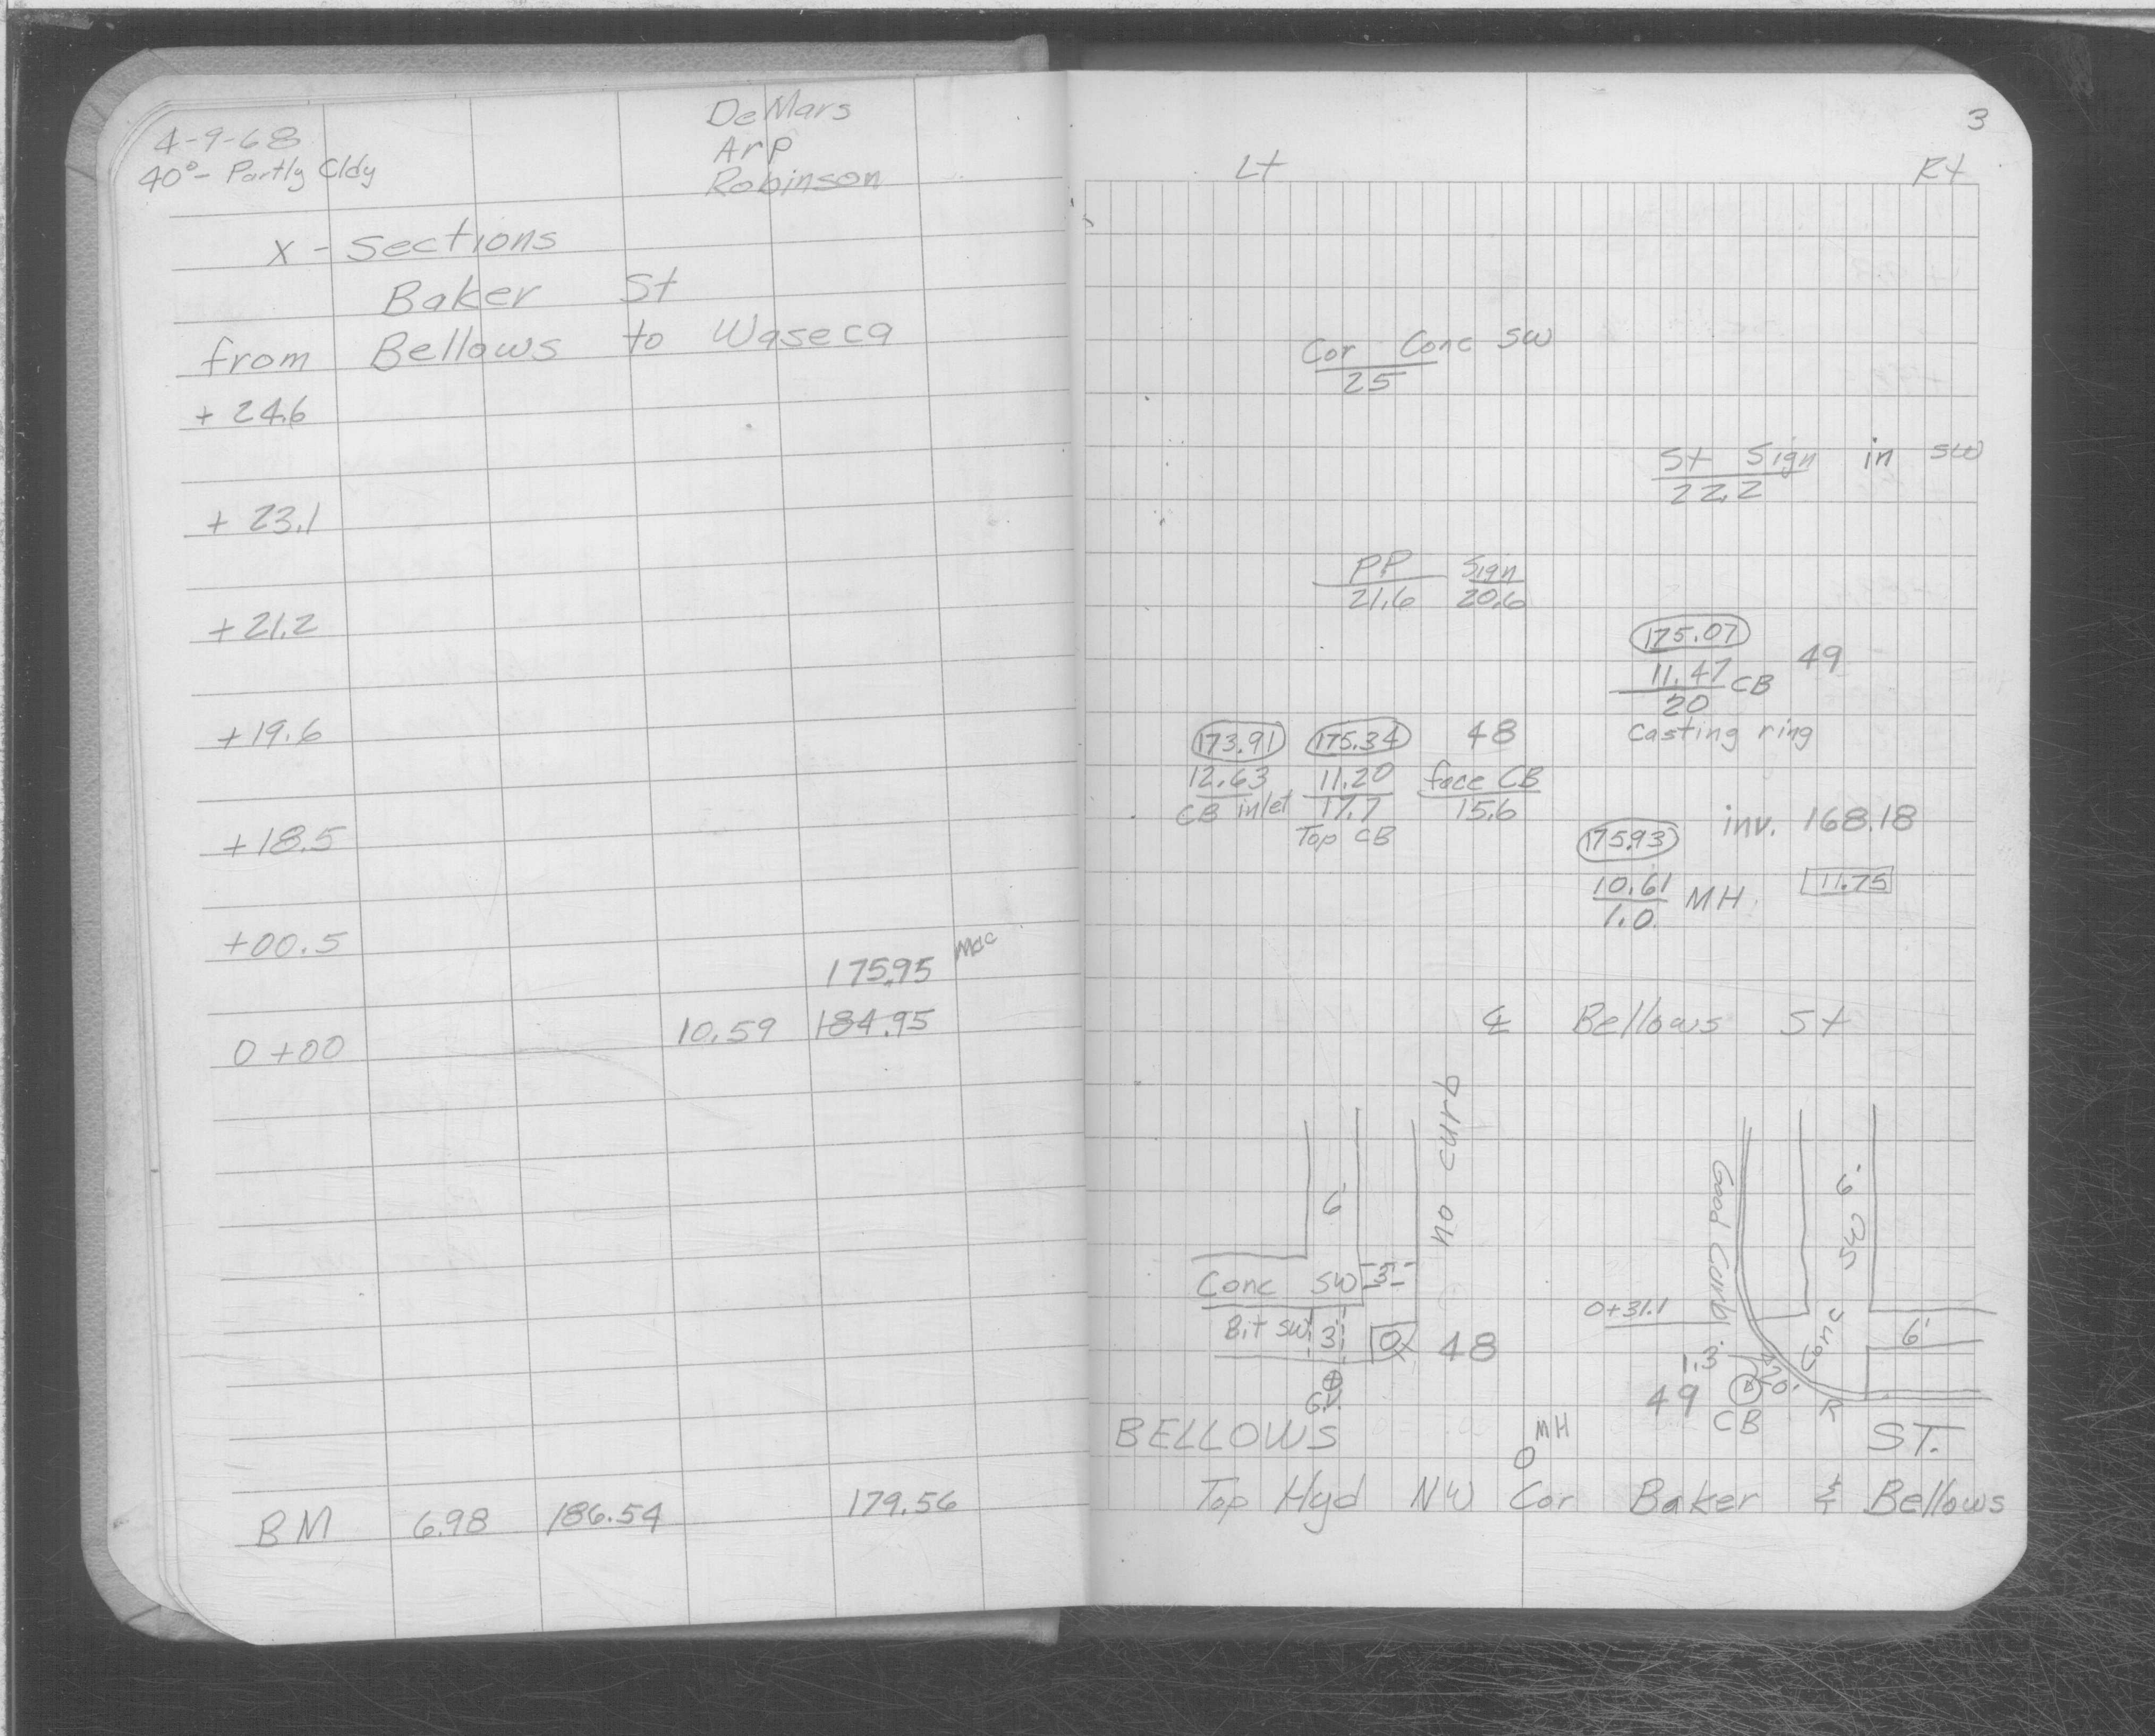 4-9-68
40°- Partly Cldy
DeMars
Arp
Robinson
X - Sections
Baker St
from Bellows to Waseca
+ 24.6
+ 23.1
+ 21.2
+ 19.6
+ 18.5
+00.5
175.95 Mac
0+00 10.59 184.95
BM 6.98 186.54 179.56
3
Lt Rt
Cor Conc SW
25
St Sign in SW
22.2
PP Sign
21.6 20.6
175.07
11.47 CB 49
20
Casting ring
173.91 175.34 48
12.63 11.20 face CB
CB inlet 17.7 15.6
Top CB
inv. 168.18
175.93
10.61 MH 11.75
1.0
℄ Bellows St
no curb
6'
Good Curb
6' SW
Conc SW 3'
0+31.1
Bit SW 3' 48
Conc
6'
1.3
49 CB
R
BELLOWS MH ST.
Top Hyd NW Cor Baker & Bellows